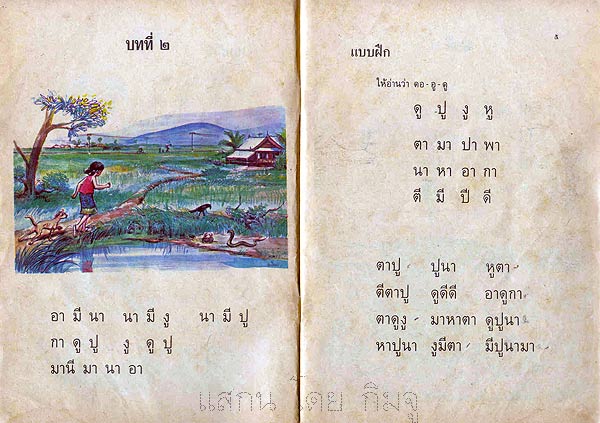 บทที่ ๒
อา มี นา นา มี งู นา มี ปู
กา ดู ปู งู ดู ปู
มานี มา นา อา
แบบฝึก
ให้อ่านว่า ดอ - อู - ดู
ดู ปู งู หู
ตา มา ปา พา
นา หา อา กา
ตี มี ปี ดี
ตาปู ปูนา หูตา
ตีตาปู ดูดีดี อาดูกา
ตาดูงู มาหาตา ดูปูนา
หาปูนา งูมีตา มีปูนามา
แสกน โดย กิมจู